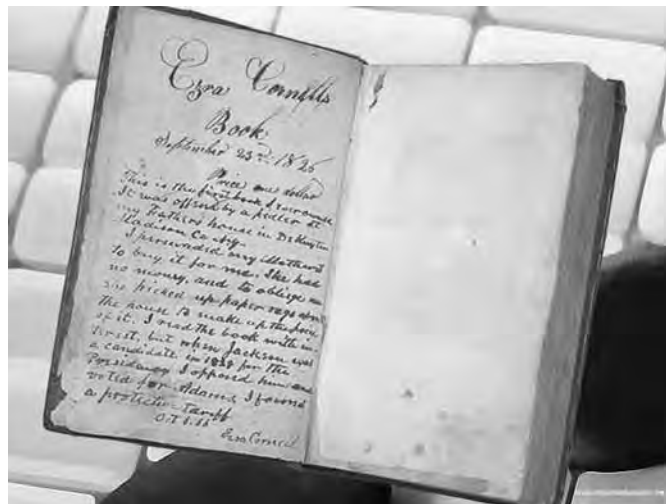 Ezra Cornells
Book
September 23rd 1825
Price one dollar
This is the first book I ever owned
It was offered by a pedler at
my Fathers house in DeRuyter
Madison Co N.Y.
I persuaded my Mother
to buy it for me. She had
no money, and to oblige me
she picked up paper rags about
the house to make up the price
of it. I read the book with in-
terest, but when Jackson was
a candidate in 1828 for the
Presidency I opposed him and
voted for Adams I favored
a protective tariff
Ezra Cornell